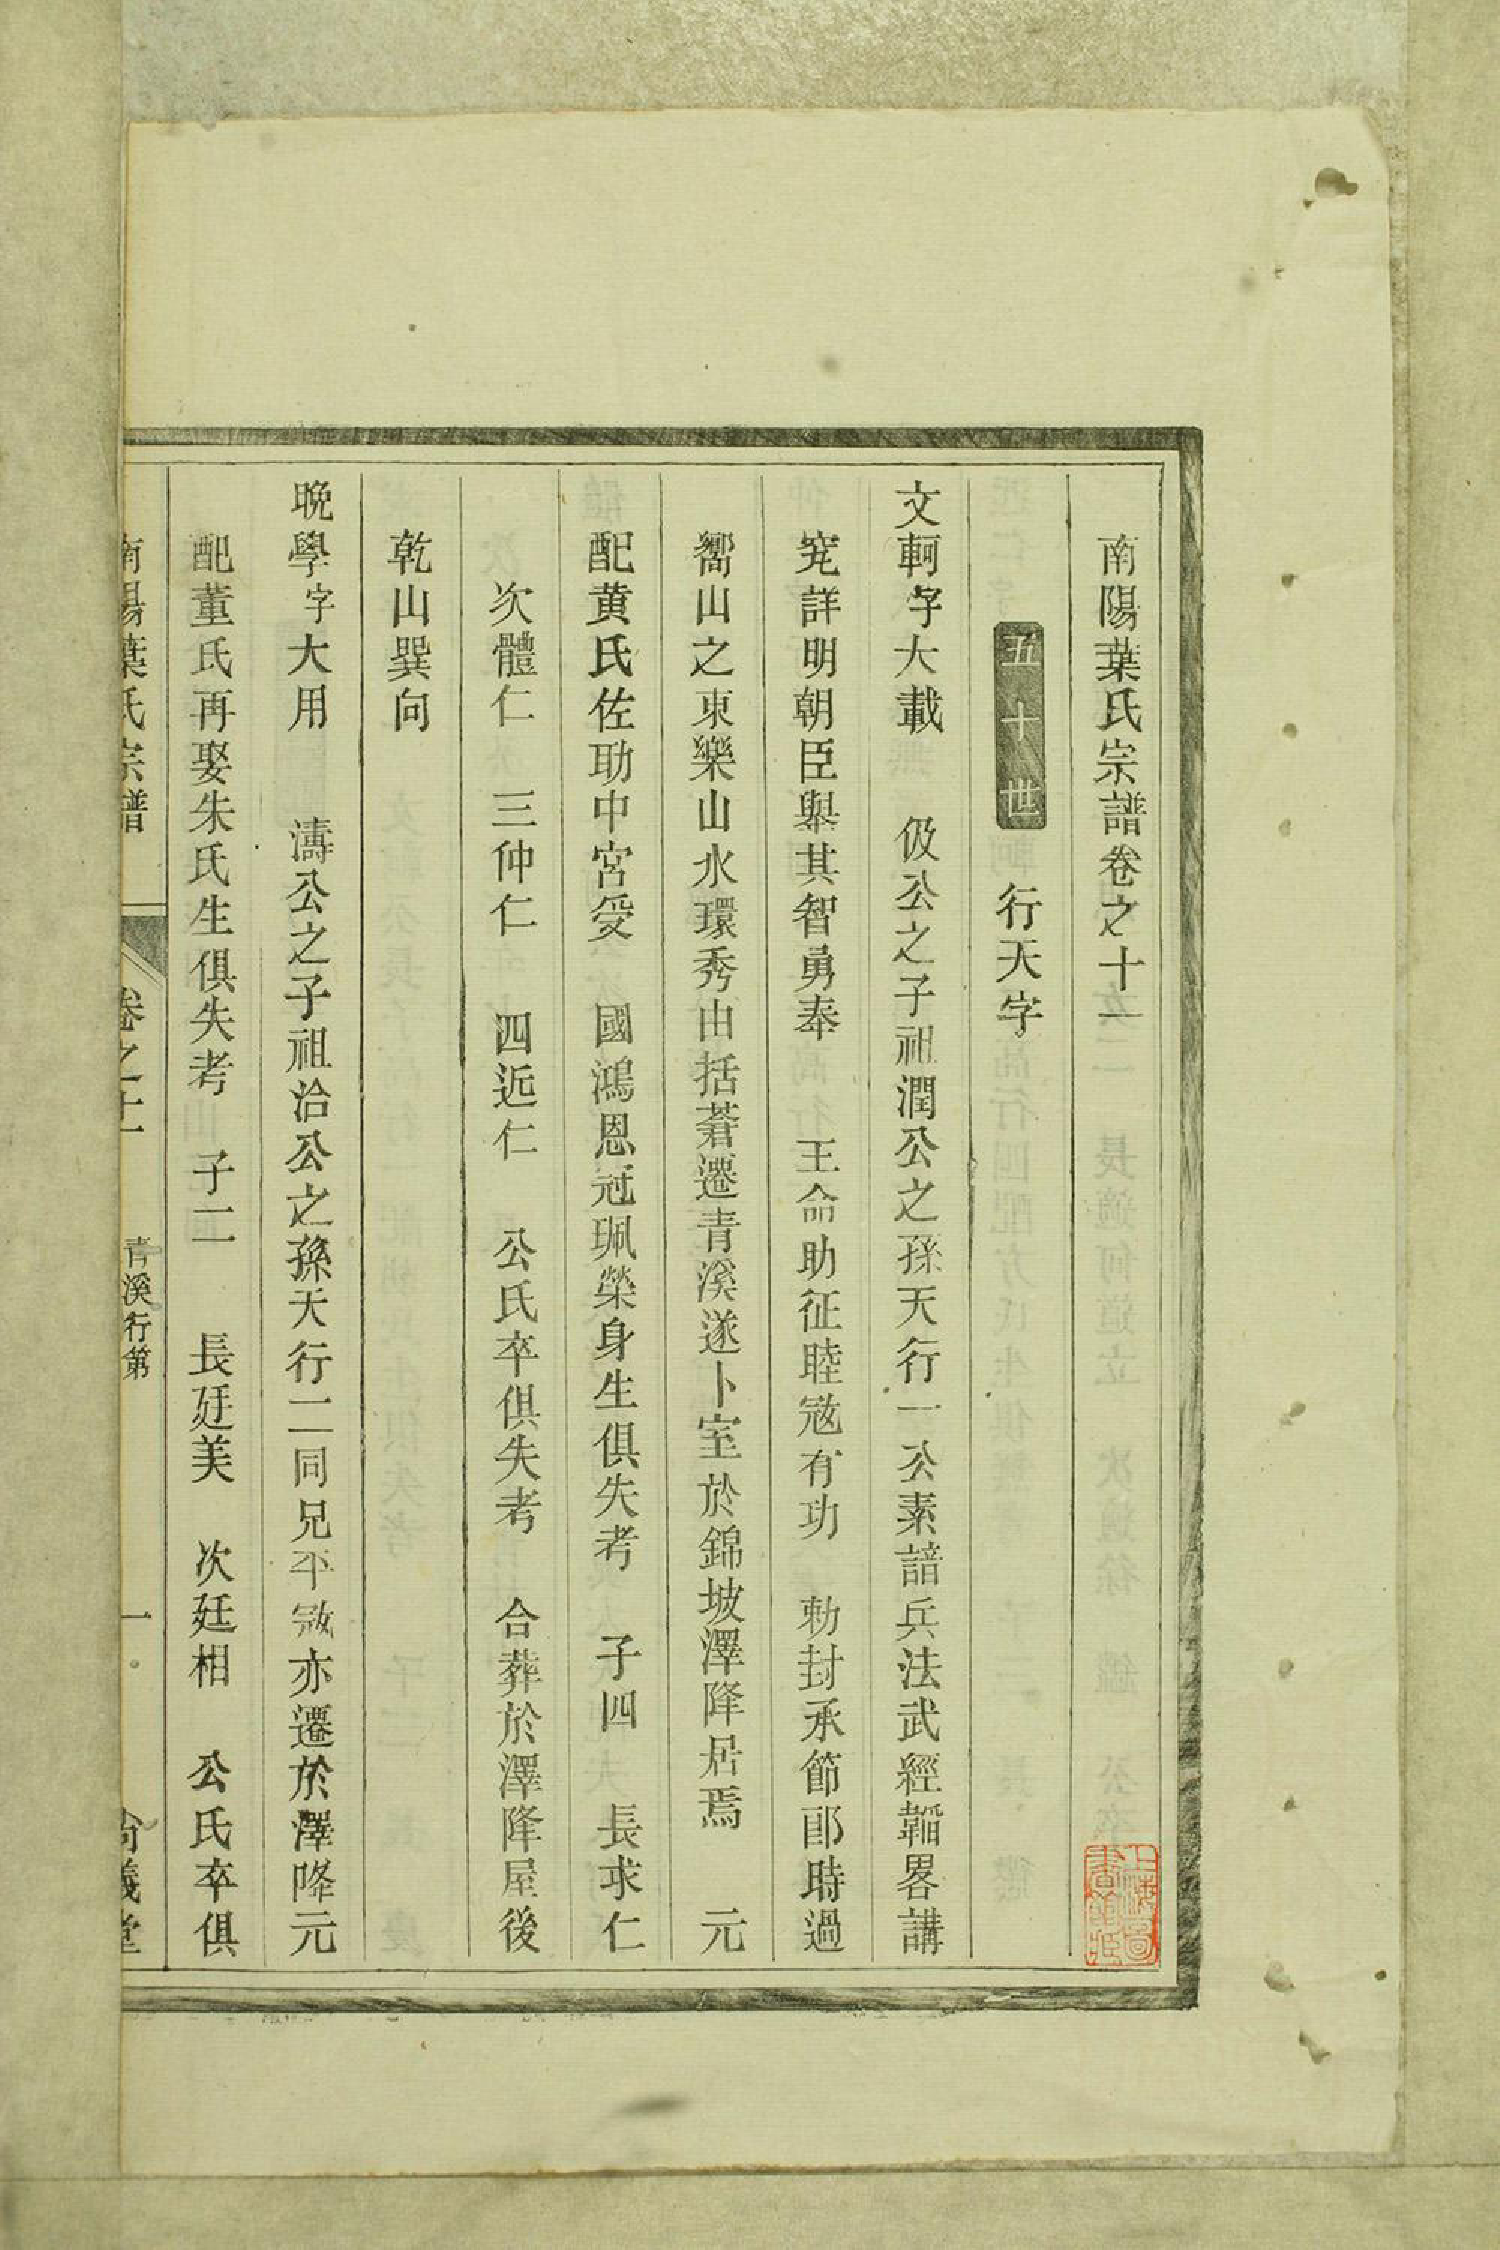 南陽葉氏宗譜卷之十一
五十世 行天字
文軻字大載 伋公之子祖潤公之孫天行一公素諳兵法武經韜畧講
究詳明朝臣舉其智勇奉 王命助征睦寇有功 勅封承節郎時過
嚮山之東樂山水環秀由括蒼遷青溪遂卜室於錦坡澤降居焉 元
配黄氏佐助中宮受 國鴻恩冠珮榮身生俱失考 子四 長求仁
次體仁 三仲仁 四近仁 公氏卒俱失考 合葬於澤降屋後
乾山巽向
晚學字大用 濤公之子祖洽公之孫天行二同兄平寇亦遷於澤降元
配董氏再娶朱氏生俱失考 子二 長廷美 次廷相 公氏卒俱
南陽葉氏宗譜 卷之十一 青溪行第 一 尚義堂
上海圖書館藏